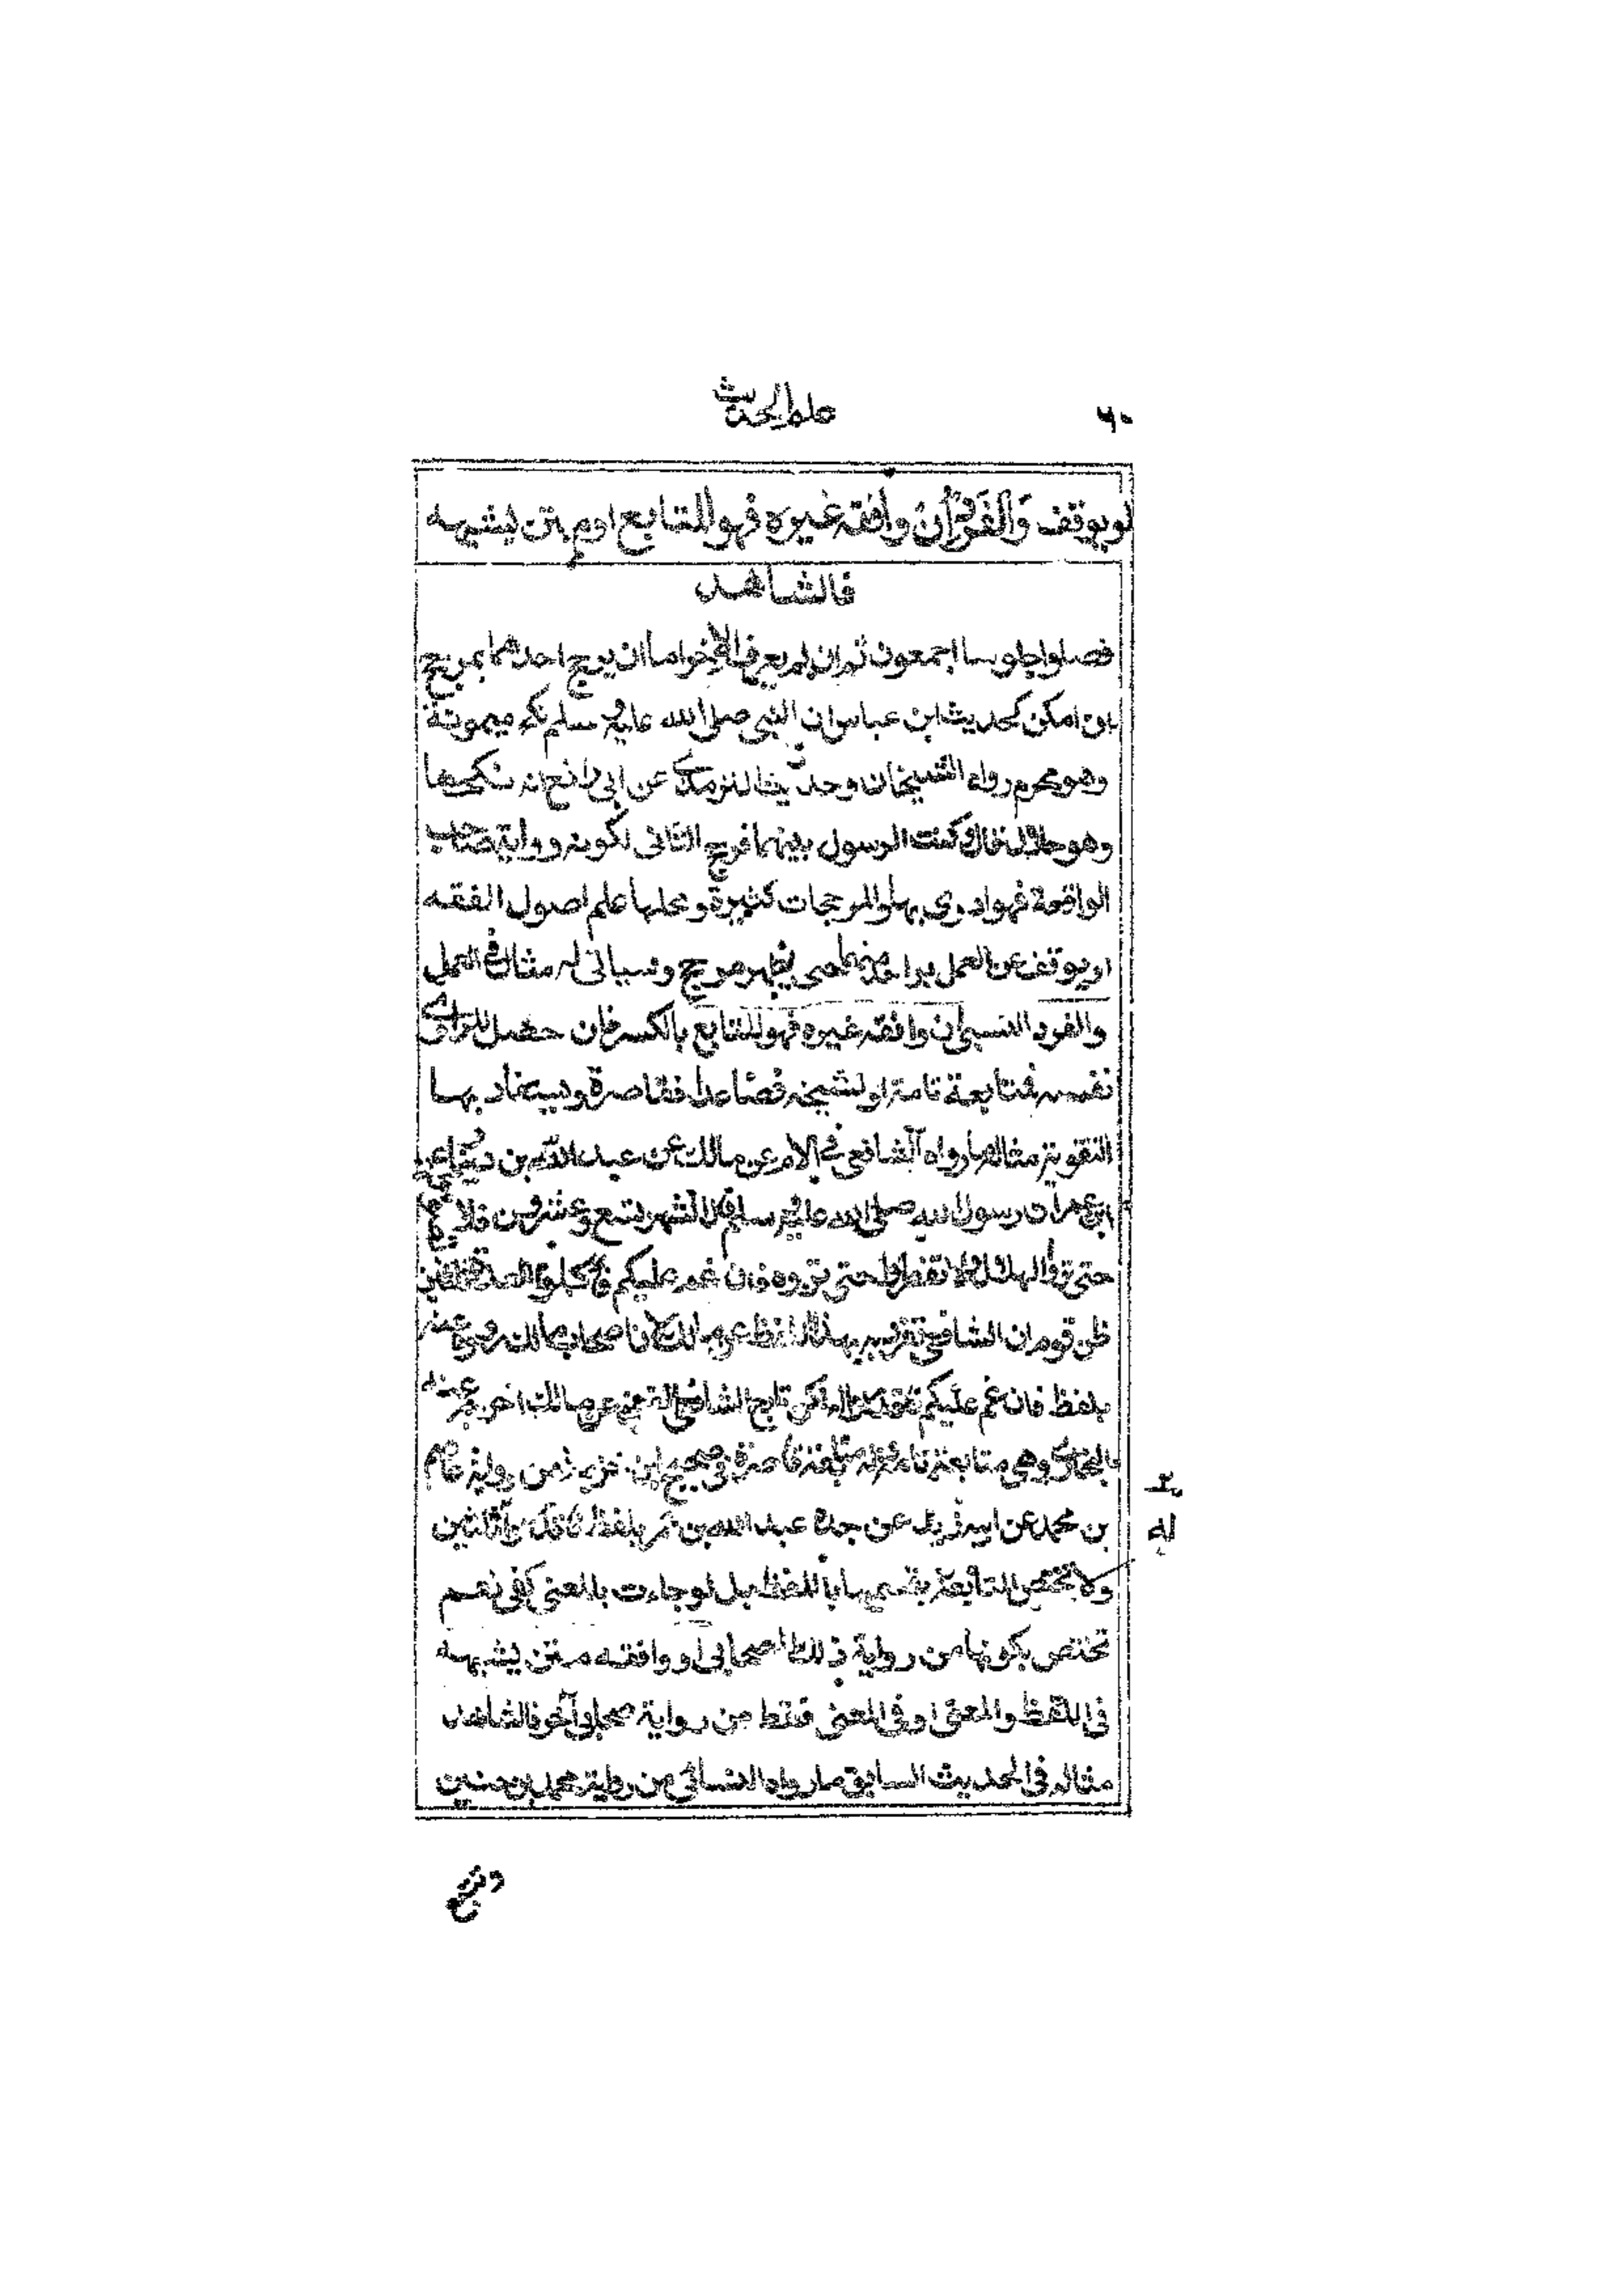 ٦٠
علم الحديث
او يوقف وَالفَرْدُ اِنْ وافقه غيره فهو المتابع او متن يشبهه
فالشاهد
فصلوا جلوسا اجمعون ثم ان لم يعرف الاخر اما ان يرجح احدهما بمرجح
ان امكن كحديث ابن عباس ان النبي صلى الله عليه وسلم نكح ميمونة
وهو محرم رواه الشيخان وحديث الترمذي عن ابي رافع انه نكحها
وهو حلال قال وكنت الرسول بينهما فرجح الثاني لكونه رواية صاحب
الواقعة فهو ادرى بها والمرجحات كثيرة ومحلها علم اصول الفقه
او يوقف عن العمل باحدهما حتى يظهر مرجح وسياتي له مثال في العمل
والفرد النسبي ان وافقه غيره فهو المتابع بالكسر فان حصل للراوي
نفسه فمتابعة تامة او لشيخه فصاعدا فقاصرة ويستفاد بها
التقوية مثاله ما رواه الشافعي في الام عن مالك عن عبد الله بن دينار عن
ابن عمر ان رسول الله صلى الله عليه وسلم قال الشهر تسع وعشرون فلا تصوموا
حتى تروا الهلال ولا تفطروا حتى تروه فان غم عليكم فاكملوا العدة ثلاثين
ظن قوم ان الشافعي تفرد به بهذا اللفظ عن مالك لان اصحاب مالك رووه عنه
بلفظ فان غم عليكم فاقدروا له لكن تابع الشافعي القعنبي عن مالك اخرجه عنه
البخاري وهي متابعة تامة وله متابعة قاصرة في صحيح ابن خزيمة من رواية عاصم
بن محمد عن ابيه زيد عن جده عبد الله بن عمر بلفظ فاقدروا ثلاثين
له
ولا تختص المتابعة بقسميها باللفظ بل لو جاءت بالمعنى كفى نعم
تختص بكونها من رواية ذلك الصحابي او وافقه متن يشبهه
في اللفظ والمعنى او في المعنى فقط من رواية صحابي آخر فالشاهد
مثاله في الحديث السابق ما رواه النسائي من رواية محمد بن حنين